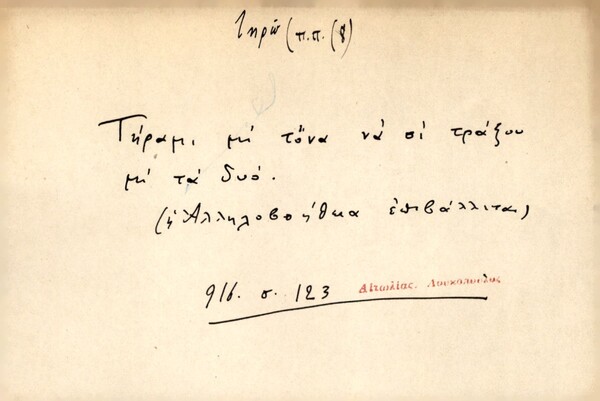 τηρῶ (π.π. (8)
Τήραμι μὴ τὄνα νὰ σὶ τράξου
μὴ τὰ δυό.
(ἡ Ἀλληλοβοήθεια ἐπιβάλλιται)
916. σ. 123 Αἰτωλίας. Λουκόπουλος